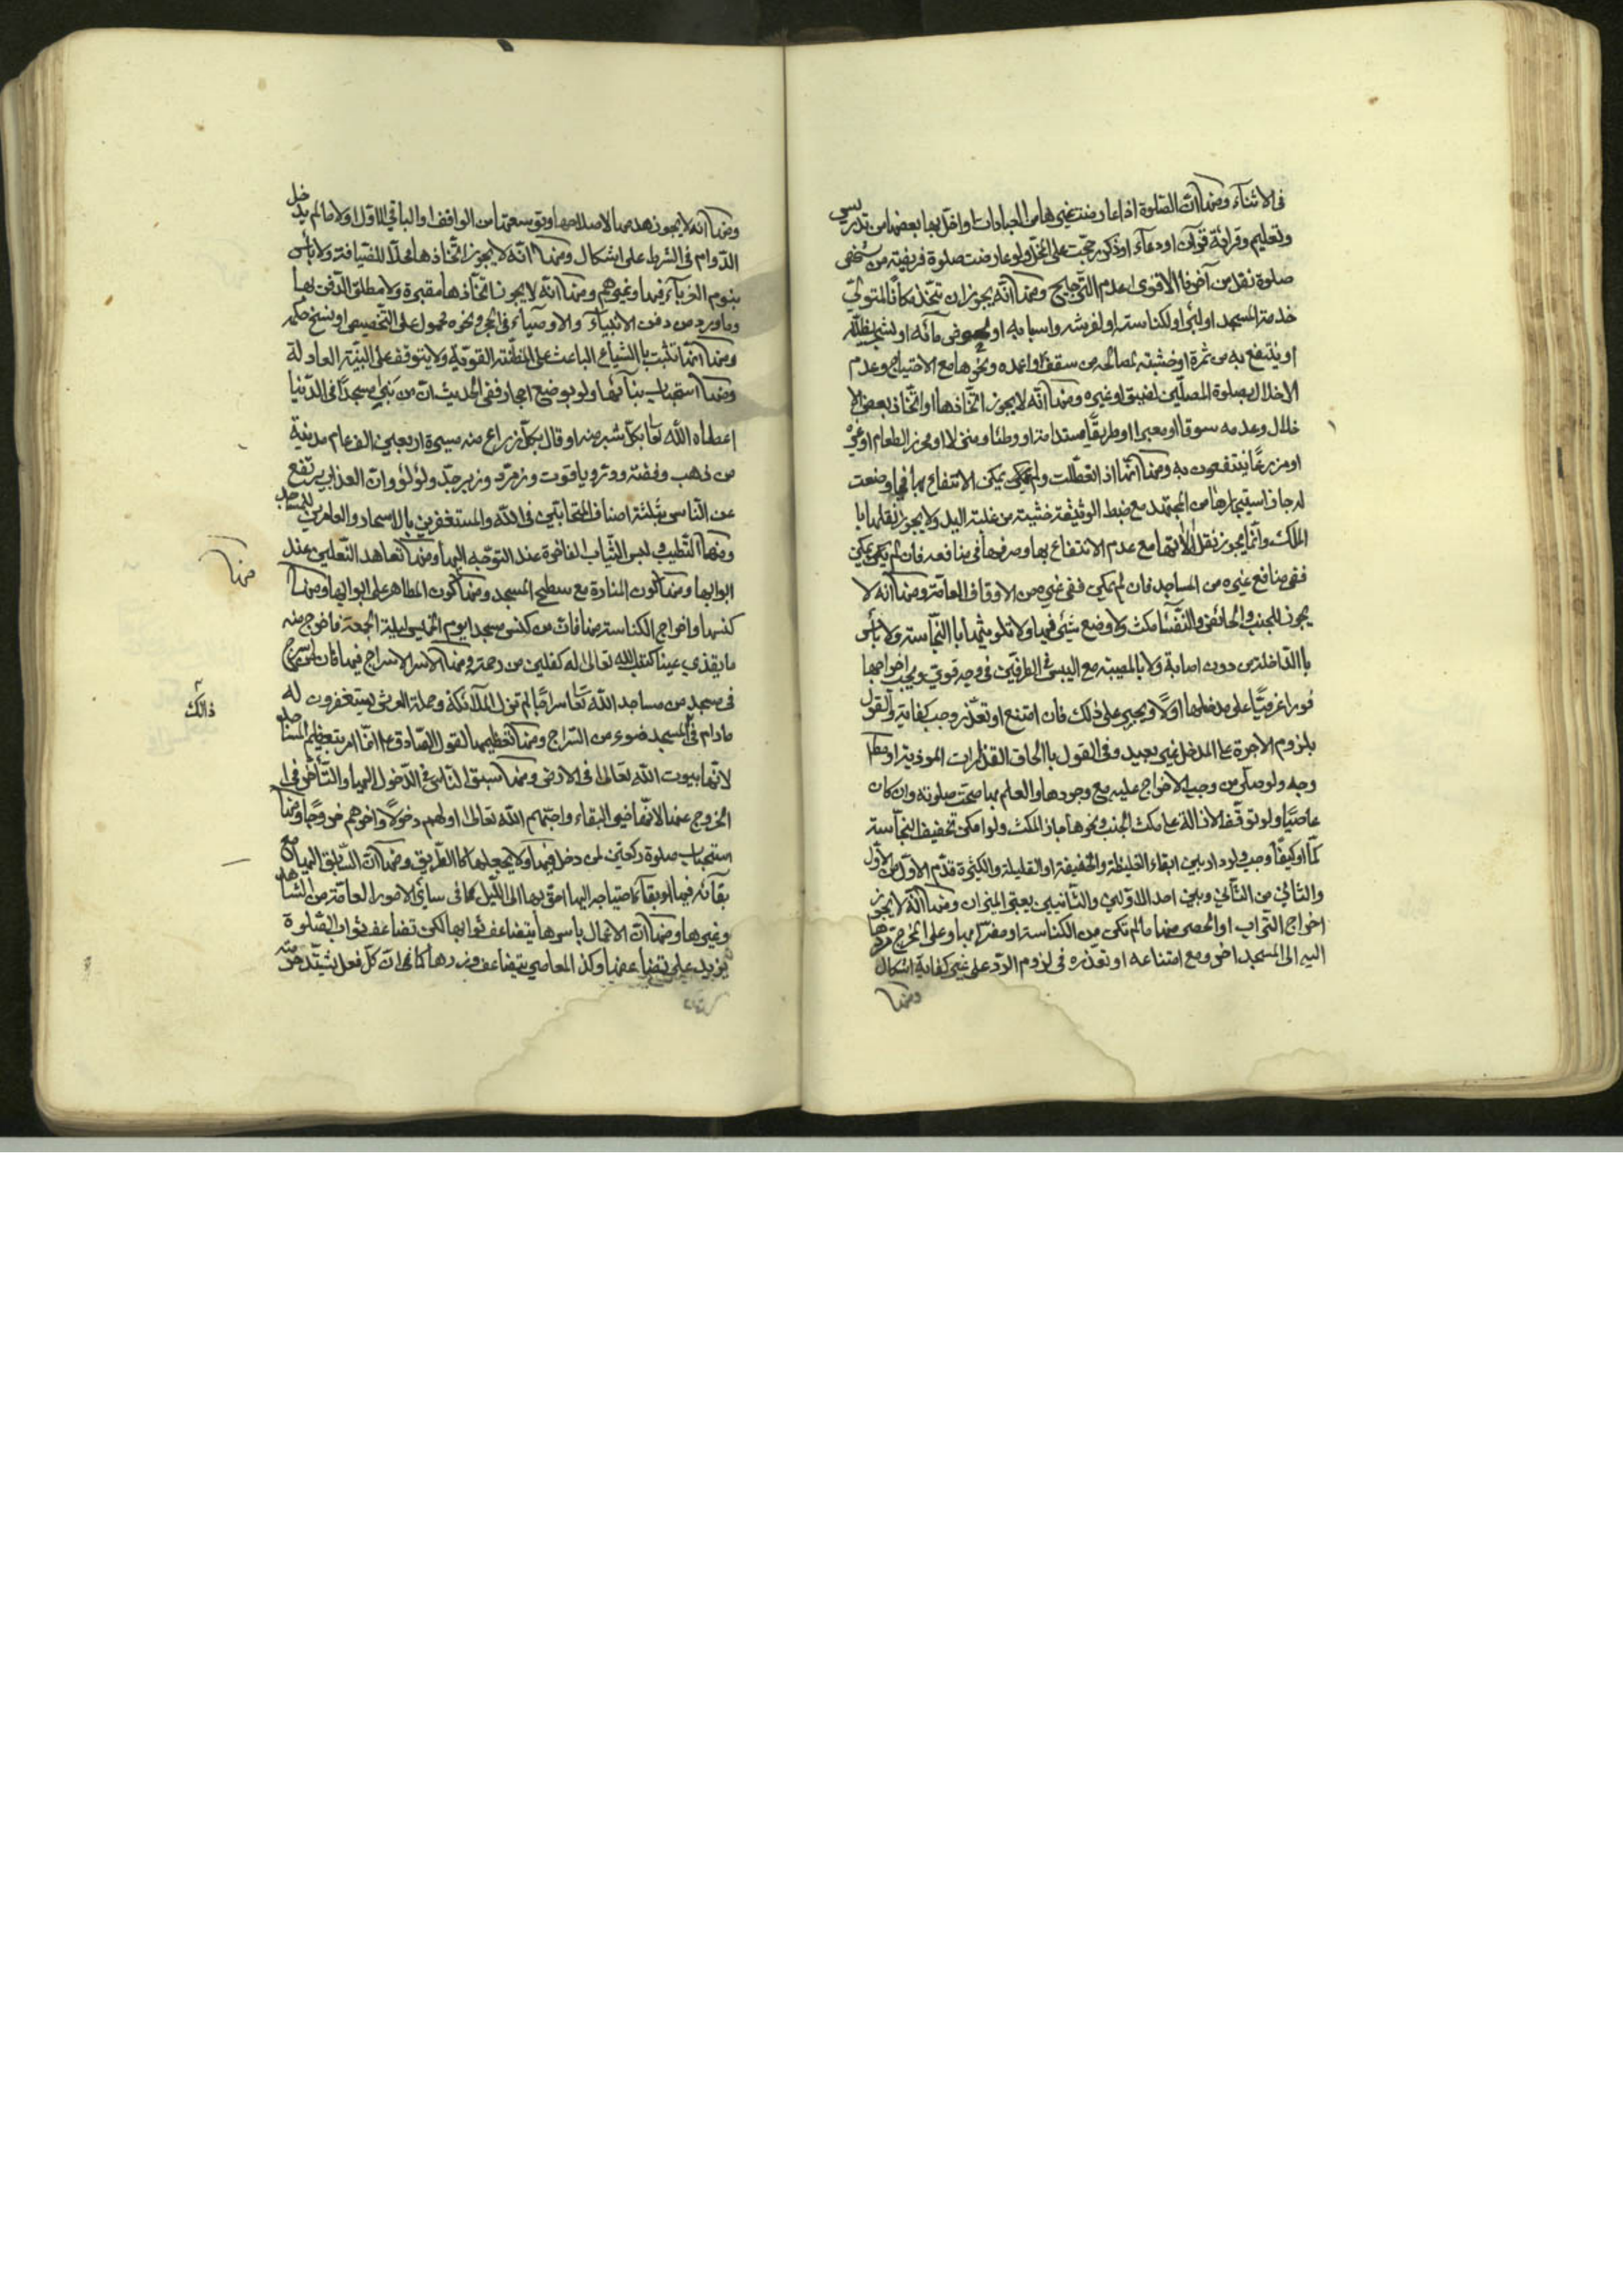 في الاثناء ومنها ان الصلوة اذا عارضت غيرها من العبادات واخل بها بعضها من تدريس
وتعليم وقرائة قرآن او دعاء او ذكر رجحت على الكل ولو عارضت صلوة فريضة من شخص
صلوة نفل من آخر فالاقوى عدم الترجيح ومنها انه يجوز ان يتخذ مكانا لمتولي
خدمة المسجد او لبئر او لكناسته او لفرشه واسبابه او في مائه او لشجر يظلله
او ينتفع به من ثمرة او خشبة لمصالحه من سقف او اعمده ونحوها مع الاحتياج وعدم
الاخلال بصلوة المصلين لضيق او غيره ومنها انه لا يجوز اتخاذها او اتخاذ بعض الا
خلال وعدمه سوقا او معبرا او طريقا مستدامة او وطنا او منزلا او محرز الطعام او غيره
او مزرعا ينتفعون به ومنها انها اذا تعطلت ولم يمكن الانتفاع بها فيما وضعت
له جاز استيجارها من المجتهد مع ضبط الوثيقة خشية من غلبة اليد ولا يجوز نقلها با
الملك وانما يجوز نقل الاتها مع عدم الانتفاع بها وصرفها في منافعه فان لم يكن يمكن
ففي منافع غيره من المساجد فان لم يمكن ففي غيره من الاوقاف العامة ومنها انه لا
يجوز للجنب والحائض والنفساء مكث ولا وضع شيئ فيها ولا تلويثها با النجاسة ولا باس
با الداخلة من دون اصابة ولا بالمصيبة مع اليبس في الطرفين في وجه قوي ويجب اخراجها
فورا عرفيا على مدخلها اولا ويجبر على ذلك فان امتنع او تعذر وجب كفاية والقول
بلزوم الاجرة على المدخل غير بعيد وفي القول با الحاق القذارات الموذية او مطلقا
وجه ولو صلى من وجب الاخراج عليه مع وجودها والعلم بها صحت صلوته وان كان
عاصيا ولو توقف الازالة على مكث الجنب ونحوها جاز المكث ولو امكن تخفيف النجاسة
كما او كيفا وجب ولو دار بين ابقاء الغليظة والخفيفة او القليلة والكثيرة قدم الاول من الاول
والثاني من الثاني وبين احد الاولين والثانيين يعتبر الميزان ومنها انه لا يجوز
اخراج التراب او الحصى منها ما لم تكن من الكناسة او مضرا بها وعلى المخرج ردها
اليه الى المسجد اخر ومع امتناعه او تعذره في لزوم الرد على غيره كفاية اشكال
ومنها
ومنها انه لا يجوز هدمها الا لاصلاحها وتوسعتها من الواقف او الباقي للاول او لا ما لم يدخل
الدوام في الشرط على اشكال ومنها انه لا يجوز اتخاذها محلا للضيافة ولا باس
بنوم الغرباء فيها وغيرهم ومنها انه لا يجوز اتخاذها مقبرة ولا مطلق الدفن بها
وما ورد من دفن الانبياء والاوصياء في الحجر ونحوه محمول على التخصيص او نسخ حكمه
ومنها انها تثبت با الشياع الباعث على المظنة القوية ولا يتوقف على البينة العادلة
ومنها استحباب بنائها ولو بوضع احجار ففي الحديث ان من بنى مسجدا في الدنيا
اعطاه الله تعا بكل شبر منه او قال بكل ذراع منه مسيرة اربعين الف عام مدينة
من ذهب وفضة ودر وياقوت وزمرد وزبرجد ولؤلؤ وان العذاب يرتفع
عن الناس بثلثة اصناف المتحابين في الله والمستغفرين بالاسحار والعامرين للمساجد
ومنها التطيب ولبس الثياب الفاخرة عند التوجه اليها ومنها تعاهد النعلين عند
ابوابها ومنها كون المنارة مع سطح المسجد ومنها كون المطاهر على ابوابها ومنها
كنسها واخراج الكناسة منها فان من كنس مسجدا يوم الخميس ليلة الجمعة فاخرج منه
ما يقذي عينا كتب الله تعالى له كفلين من رحمته ومنها الاسراج فيها فان من اسرج
في مسجد من مساجد الله تعا سراجا لم تزل الملائكة وحملة العرش يستغفرون له
ما دام في المسجد ضوء من السراج ومنها تعظيمها لقول الصادق ع انما امر بتعظيم المساجد
لانها بيوت الله تعالى في الارض ومنها سبق الناس في الدخول اليها والتأخر في
الخروج عنها لانها خير البقاع واحبهم الى الله تعالى اولهم دخولا واخرهم خروجا ومنها
استحباب صلوة ركعتين لمن دخل فيها ولا يجعلها كا الطريق ومنها ان السابق اليها مع
بقائه فيها او بقاء احتياجه اليها احق بها الى الليل كما في سائر الامور العامة من المشاهد
وغيرها ومنها ان الاعمال باسرها يتضاعف ثوابها لكن تضاعف ثواب الصلوة
يزيد على تضاعفها وكذا المعاصي يتضاعف وزرها كما في ان كل فعل يشتد حرمته
منها
ذالك